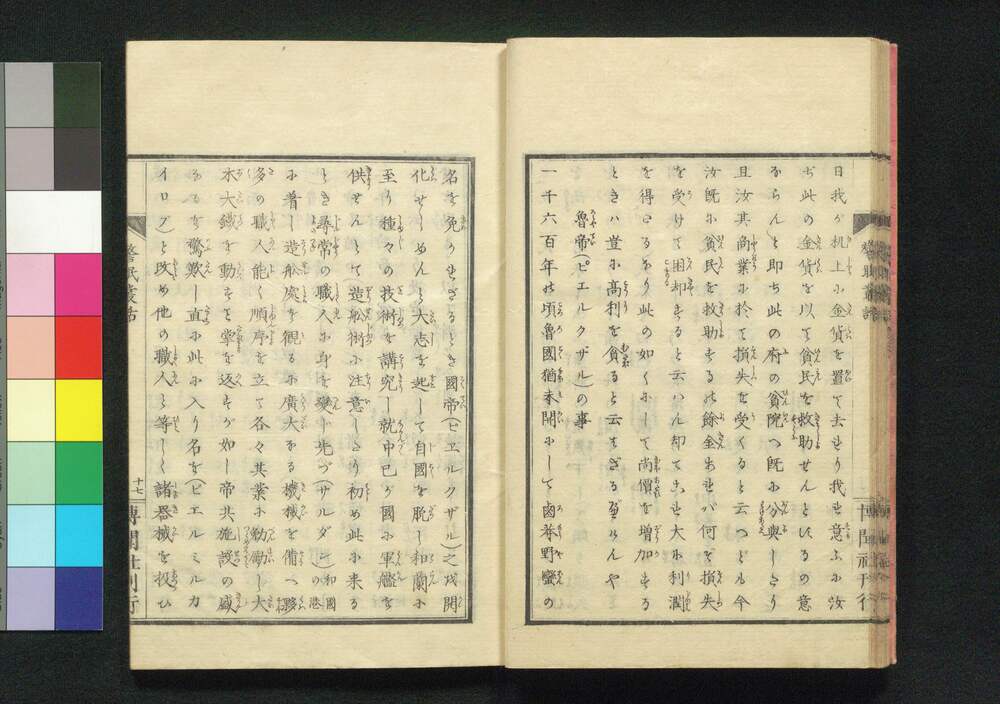 日我ガ机上ニ金貨を置て去せり我せ意ふニ汝
ぢ此の金貨を以て貧民を救助せんとするの意
ならんと即ち此の府の貧院へ既ニ分與したり
且汝其商業ニ於て損失を受くると云へども今
汝既ニ貧民を救助せるの餘金あせバ何ぞ損失
を受けて困却せると云ハん却てこせ大ニ利潤
を得たるなり此の如くニして尚價を増加せる
ときハ豈ニ高利を貪ると云せざる可けんや
魯帝(ピエルクザル)の事
一千六百年の頃魯國猶未開ニして鹵莽野蠻の
名を免かせざるとき國帝(ピエルクザル)之を開
化せしめんと大志を起して自國を脱し和蘭ニ
至り種々の技術を講究し就中己が國ニ軍艦を
供せんとて造舩術ニ注意したり初め此ニ來る
とき尋常の職人ニ身を變し先づ(サルダム)和蘭の港
ニ着し造舩處を觀るニ廣大なる機械を備へ夥
多の職人能く順序を立て各々其業ニ勤勵し大
木大鐵を動かすと掌を返すが如し帝其施設の盛
なるを驚歎し直ニ此ニ入り名を(ピエルミルカ
イロク)と改め他の職人と等しく諸器械を扱ひ
十七
博聞社刊行
博聞社刊行